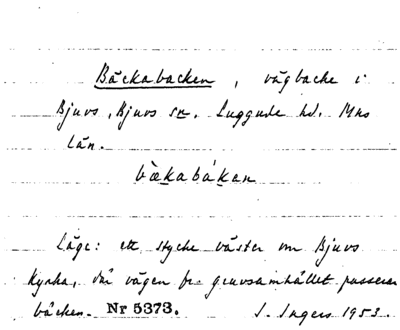 Bäckabacken, vägbacke i
Bjuvs, Bjuvs sn. Luggude hd. Mhs
län.
bækabákan
Läge: ett stycke väster om Bjuvs
Kyrka, där vägen fr. gruvsamhället passerar
bäcken. Nr 5373. I. Ingers 1953.